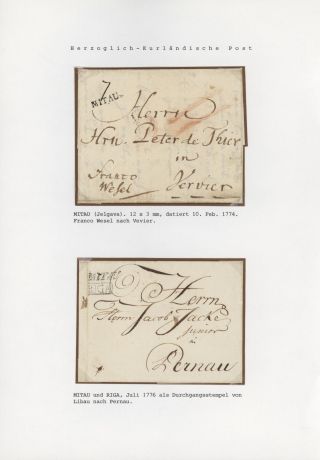 Herzoglich-Kurländische Post
7
MITAU
Herrn
Hrn. Peter de Thier
in
Franco
Wesel
Vervier
MITAU (Jelgava). 12 x 3 mm, datiert 10. Feb. 1774.
Franco Wesel nach Vevier.
MITAU
RIGA
Herrn
Herrn Jacob Jacke
junior
in
Pernau
MITAU und RIGA, Juli 1776 als Durchgangsstempel von
Libau nach Pernau.